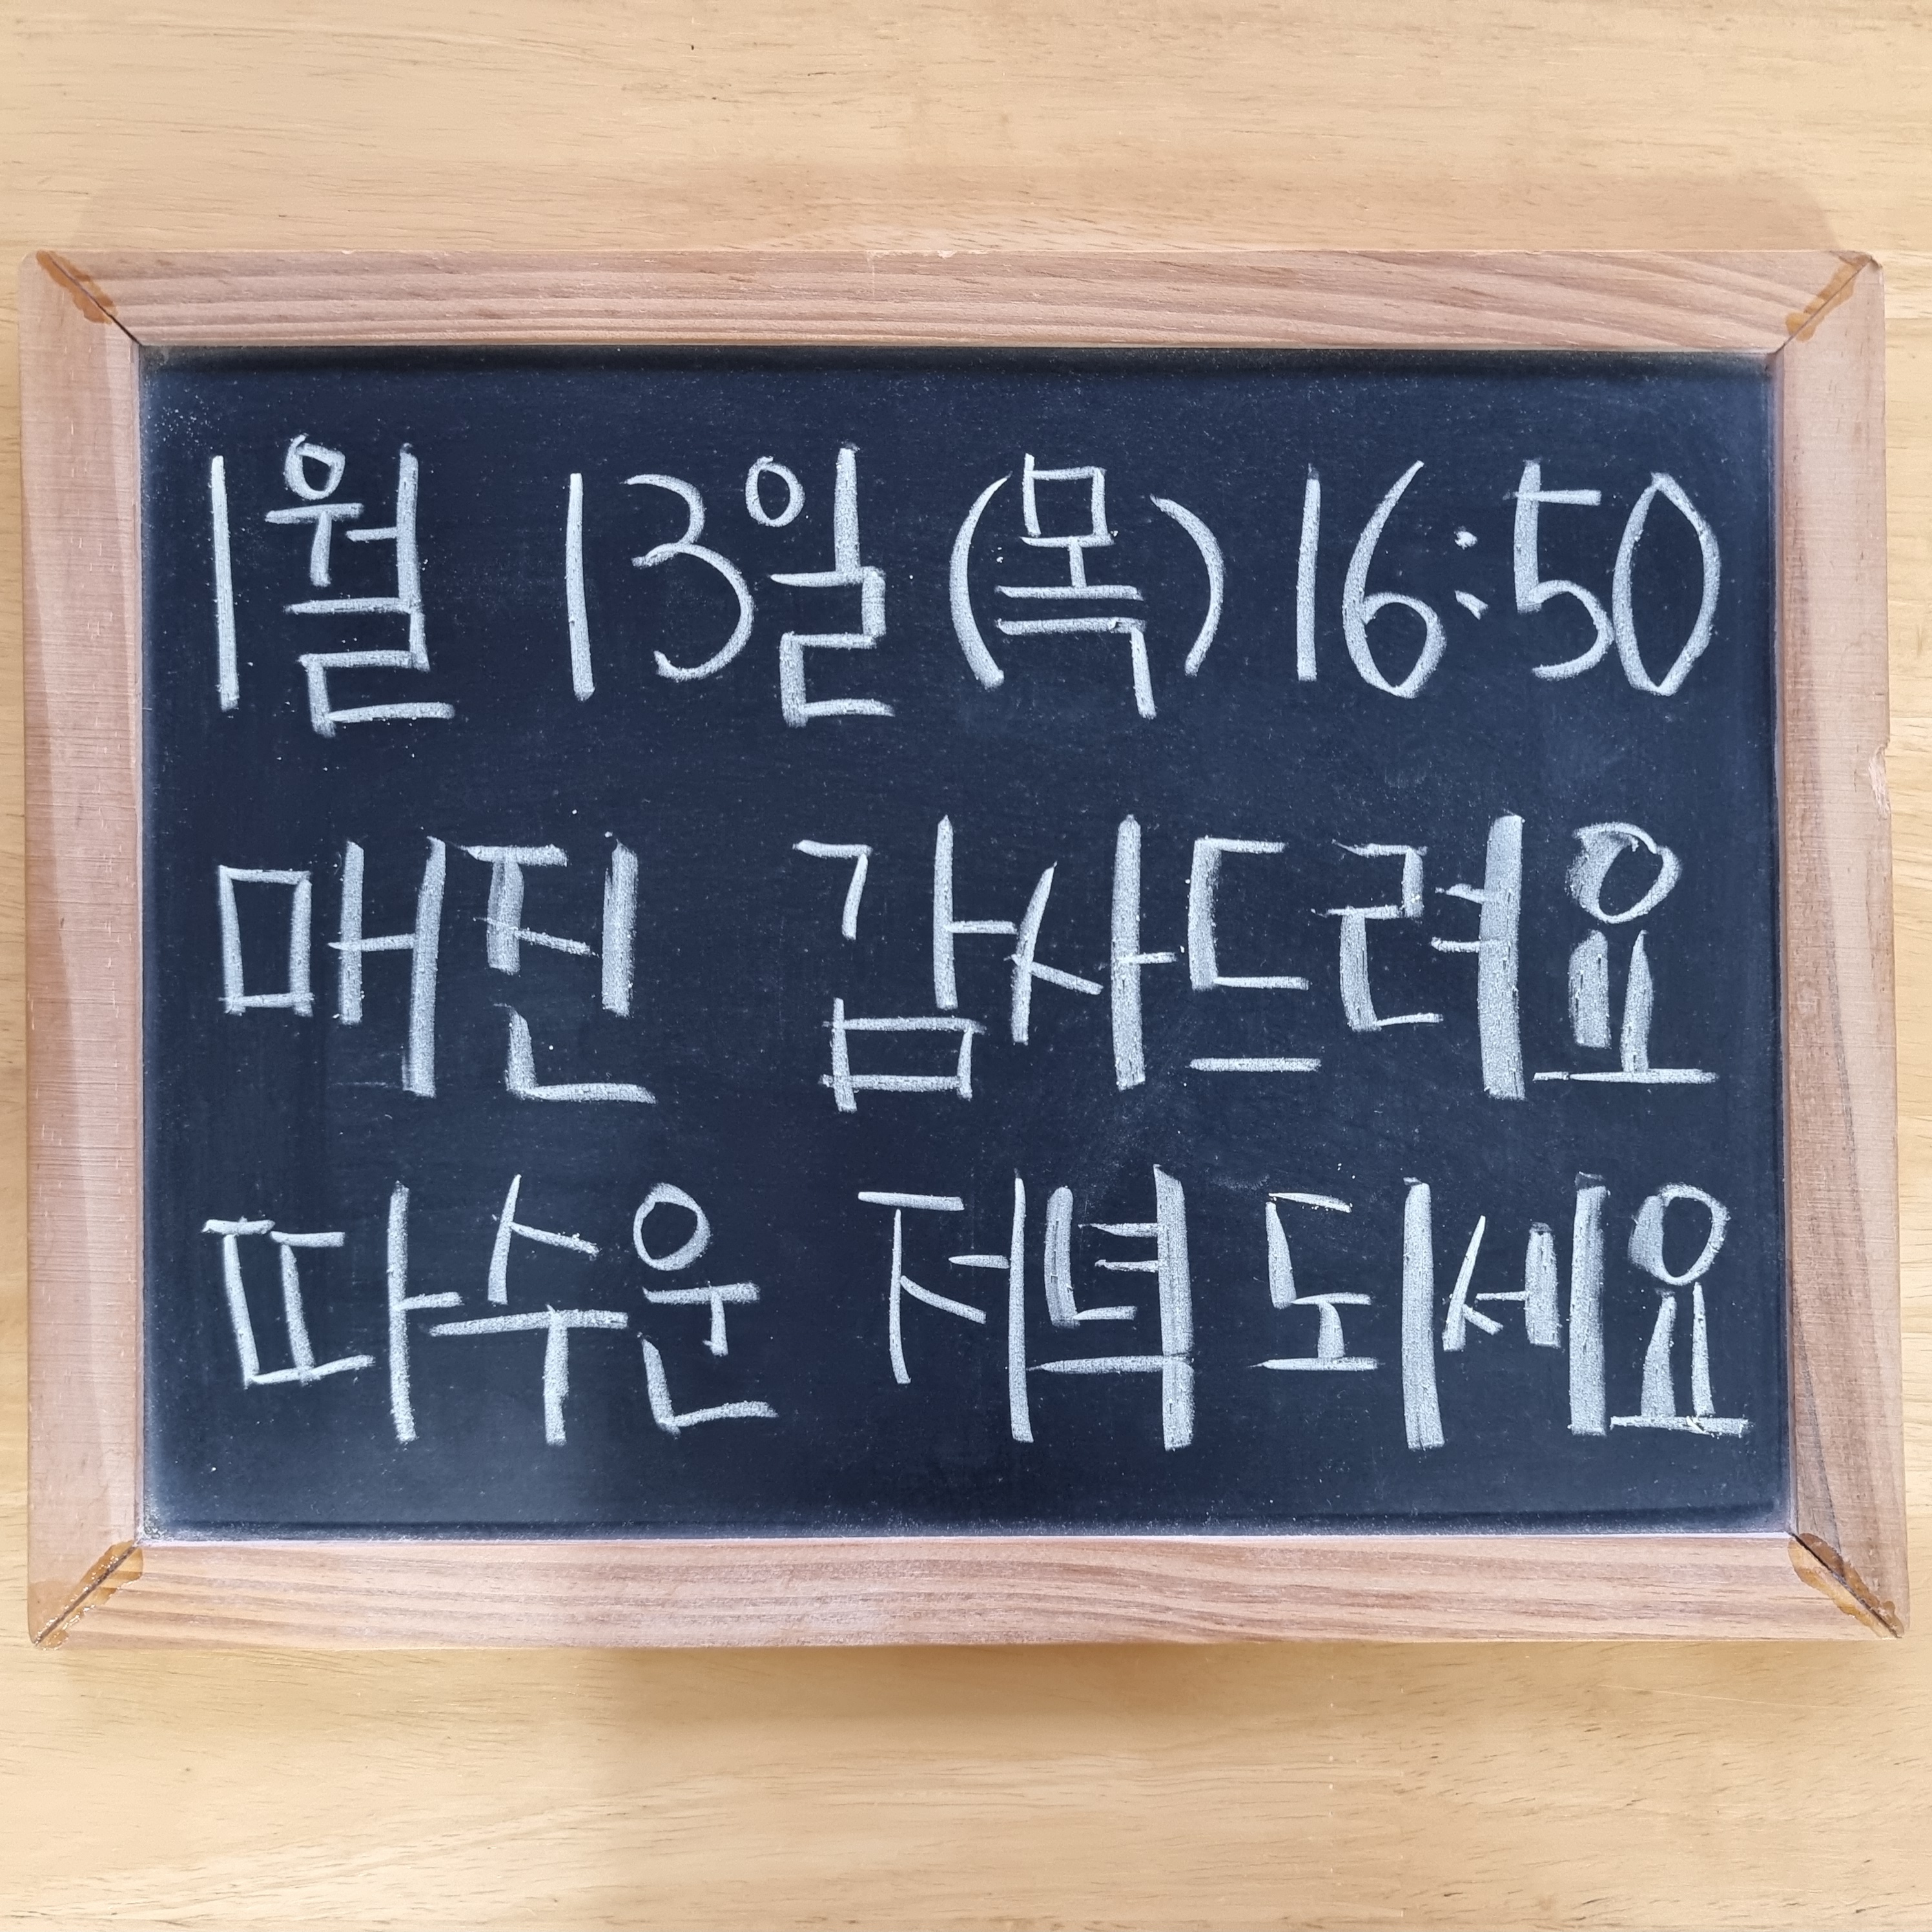 1월 13일(목) 16:50
매진 감사드려요
따수운 저녁 되세요